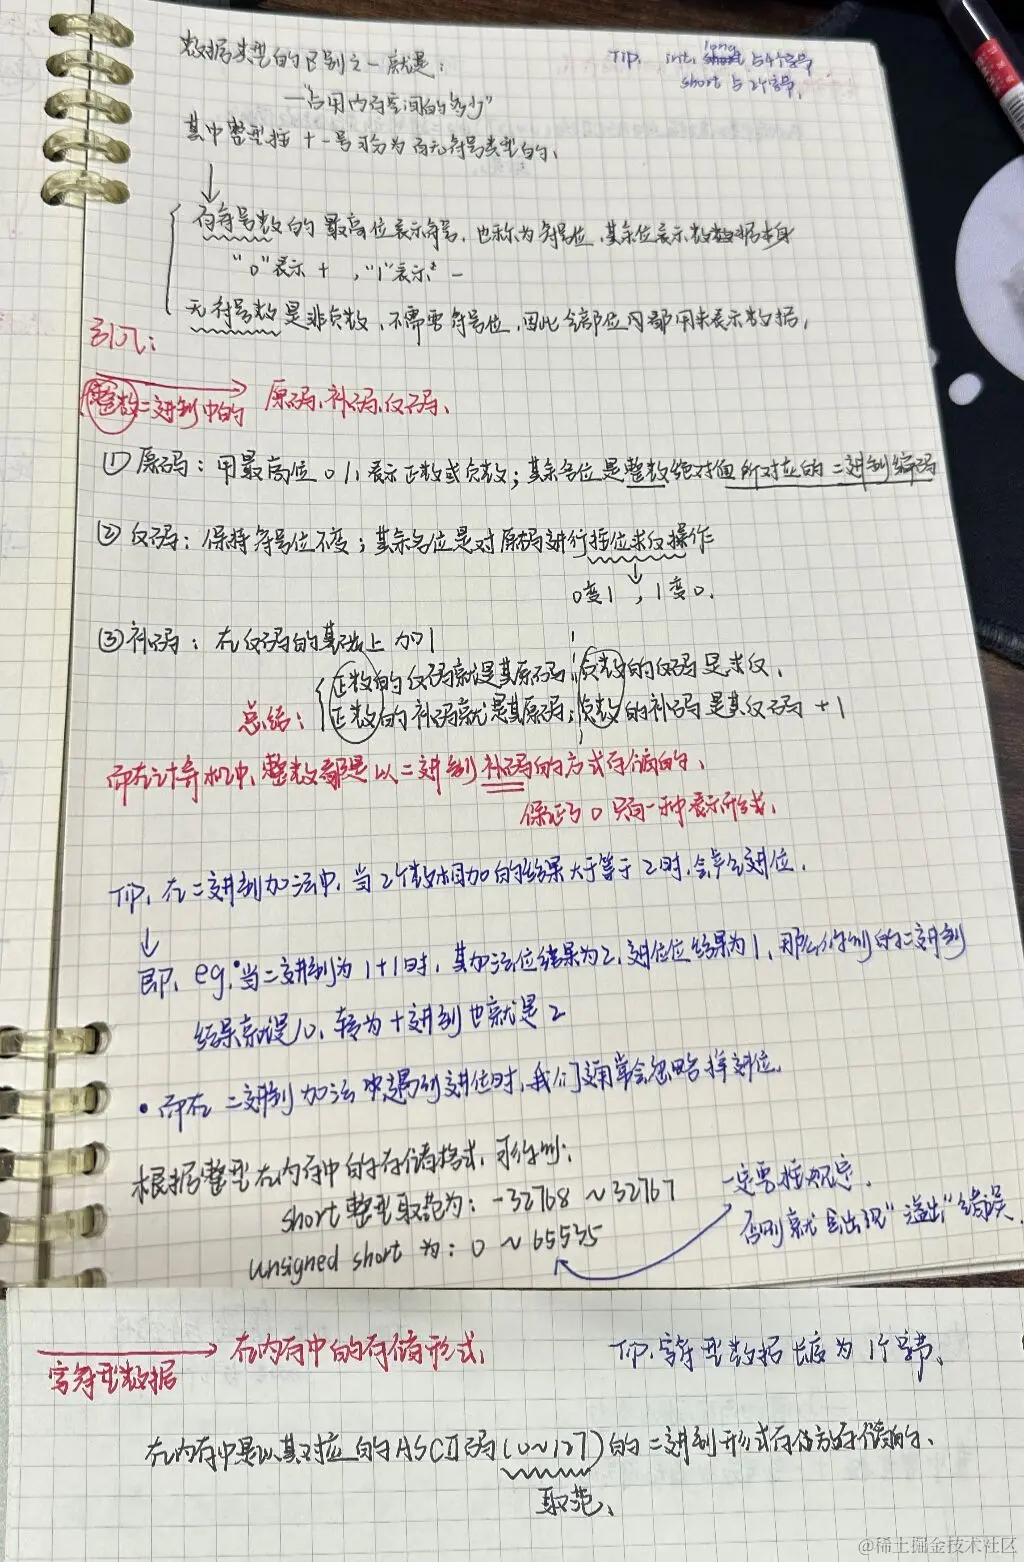 数据类型的区别之一就是:
Tip. int. long 占4个字节
short 占2个字节.
—"占用内存空间的多少"
其中整型按 + - 号可分为有无符号类型的、
有符号数的 最高位表示符号, 也称为符号位, 其余位表示数数据本身
"0"表示 + , "1"表示 -
无符号数 是非负数, 不需要符号位, 因此全部位内都用来表示数据,
引入:
整数二进制中的 原码、补码、反码、
① 原码: 用最高位 0 1, 表示正数或负数; 其余各位是整数绝对值所对应的二进制编码
② 反码: 保持符号位不变; 其余各位是对原码进行按位求反操作
0变1 , 1变0.
③ 补码: 在反码的基础上加1
正数的反码就是其原码; 负数的反码是求反,
总结: 正数的补码就是其原码; 负数的补码是其反码 +1
而在计算机中, 整数都是以二进制补码的方式存储的、
保证了0只有一种表示形式.
Tip. 在二进制加法中, 当2个数相加的结果大于等于2时, 会产生进位.
即. eg. 当二进制为1+1时, 其加法位结果为2, 进位位结果为1, 那么得到的二进制
结果就是10, 转为十进制也就是2
• 而在二进制加法中遇到进位时, 我们通常会忽略掉进位.
根据整型在内存中的存储格式, 可得到:
short 整型取范为: -32768 ~ 32767
一定要按规定.
unsigned short 为: 0 ~ 65535
否则就会出现"溢出"错误.
字符型数据 在内存中的存储形式,
Tip. 字符型数据长度为1个字节、
在内存中是以其对应的ASCII码(0~127)的二进制形式存储的、
取范、
@稀土掘金技术社区